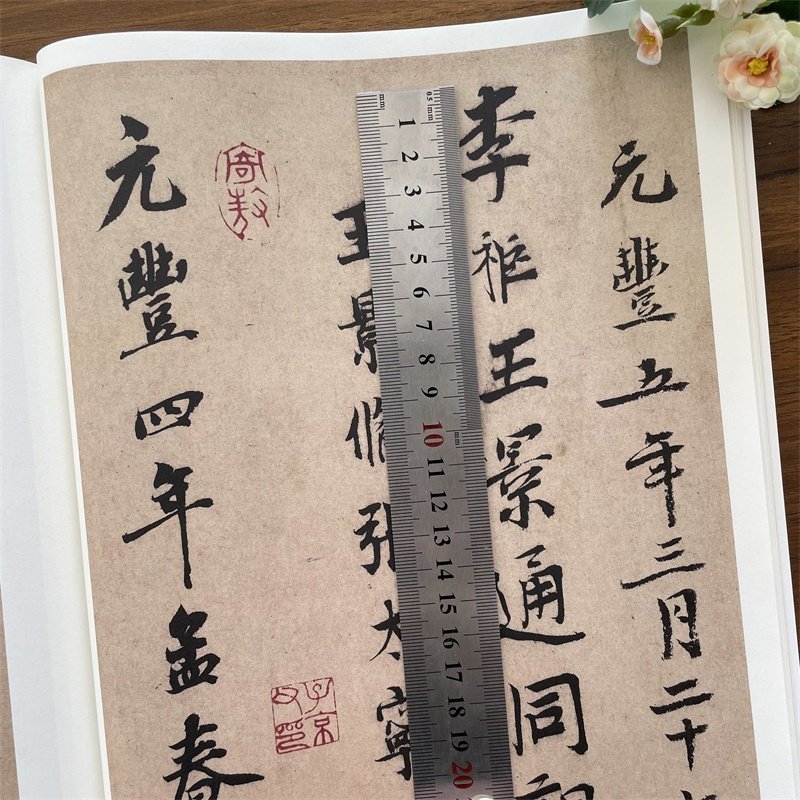 元豐五年三月二十
李秬王景通同
王景脩張太寧
元豐四年孟春
子京父印
mm
0.5 mm
1
2
3
4
5
6
7
8
9
10
mm
11
12
13
14
15
16
17
18
19
20